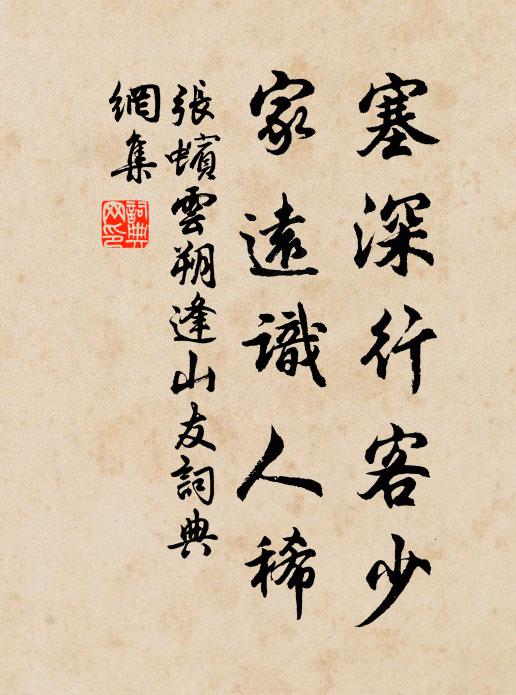 塞深行客少
家遠識人稀
張蠙雲朔逢山友詞典
網集
詞典
网印